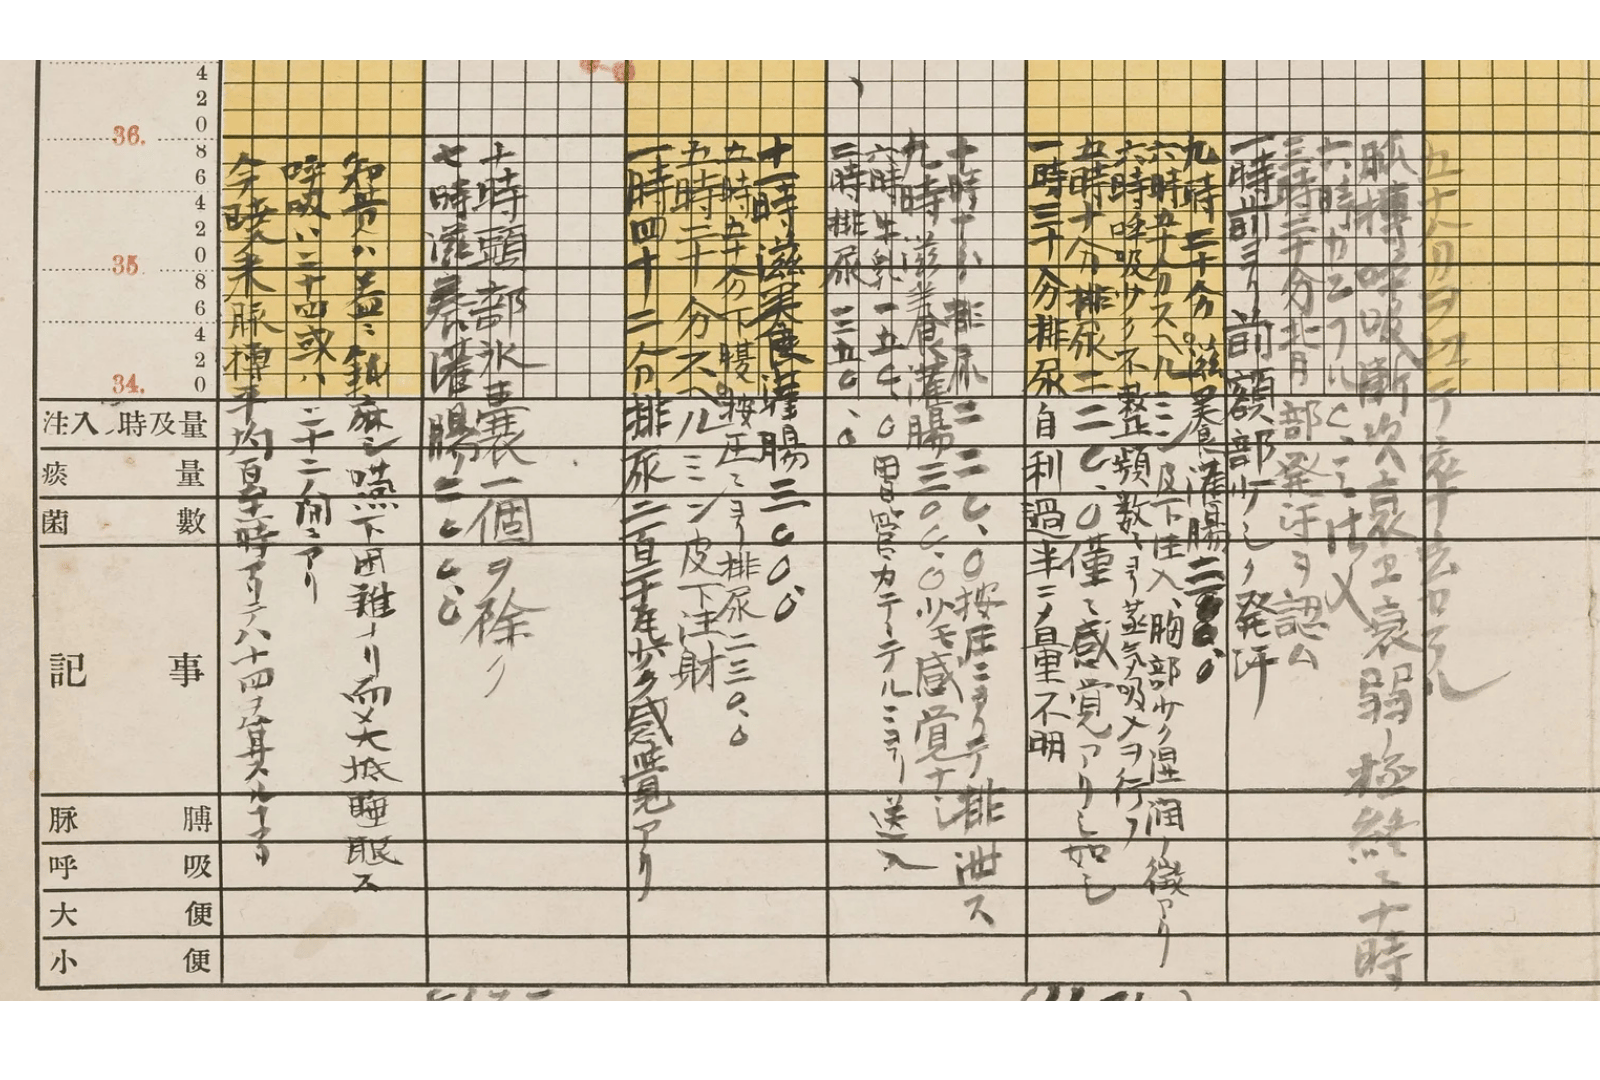 4
2
0
36.
8
6
4
2
0
35
8
6
4
2
0
34.
注入ノ時及量
痰量
菌數
記事
脉膊
呼吸
大便
小便
今暁来脉搏平均百至時アリテ八十四ヲ算スルコトアリ
呼吸ハ二十四或ハ二十二ノ間ニアリ
知覚ハ益々鈍麻シ嚥下困難ナリ而メ大抵睡眠ス
七時滋養灌腸二〇〇、〇
十時頭部氷嚢一個ヲ除ク
一時四十二分排尿二百二十瓦少シク感覺アリ
五時二十分スヘルミン皮下注射
五時五十分下腹按圧ニヨリ排尿二三〇、〇
十一時滋養食灌腸三〇〇、〇
二時排尿二五〇、〇
六時牛乳一五〇、〇胃管カテーテルニヨリ送入
九時滋養食灌腸三〇〇、〇少モ感覚ナシ
十時十分排尿二二〇、〇按圧ニヨリテ排泄ス
一時三十分排尿自利過半ニメ量不明
五時十分排尿二二〇、〇僅ニ感覚アリシ如シ
六時呼吸少ク不整頻数ニヨリ蒸気吸入ヲ行フ
六時五十分スヘルミン皮下注入、胸部少ク湿潤ノ徴アリ
九時三十分滋養食灌腸二〇〇、〇
一時前ヨリ前額部少シク発汗
三時三十分背部発汗ヲ認ム
六時カンフル〇、二注入
脈搏呼吸漸次衰ヱ衰弱ノ極終ニ十時
五十八分ヲ以テ卒去セラル